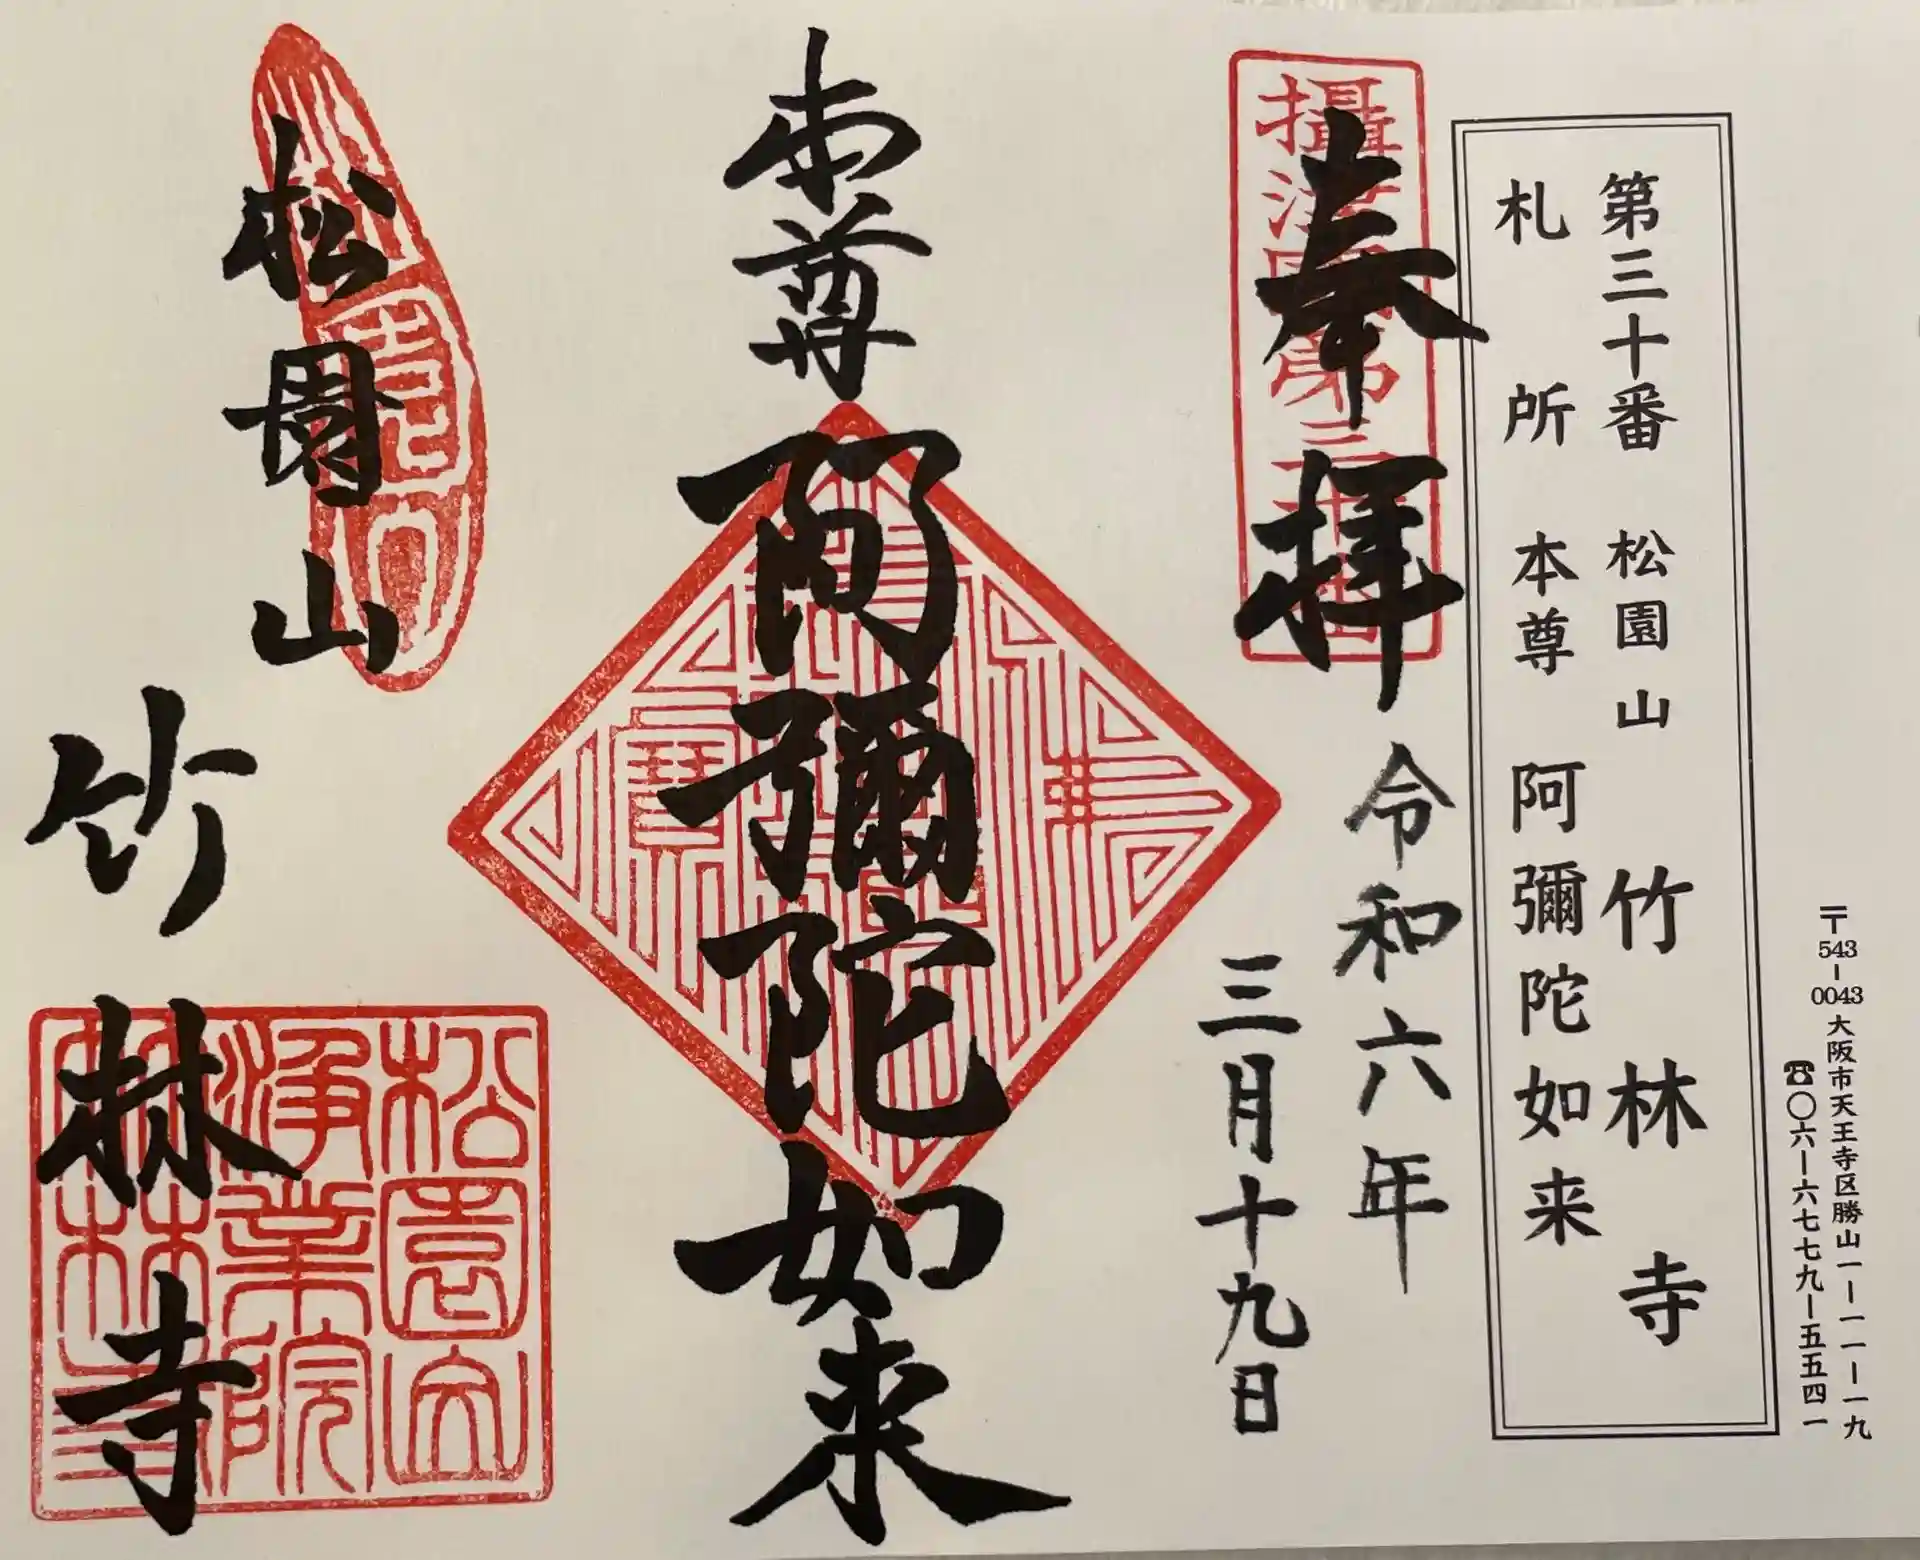 〒543-0043 大阪市天王寺区勝山一ー一一ー一九
☎〇六ー六七七九ー五五四一
第三十番 松園山 竹林寺
札所 本尊 阿彌陀如来
奉拝
令和六年
三月十九日
本尊 阿彌陀如来
松園山
竹林寺
攝津國第三十番
松園山
浄業院
竹林寺